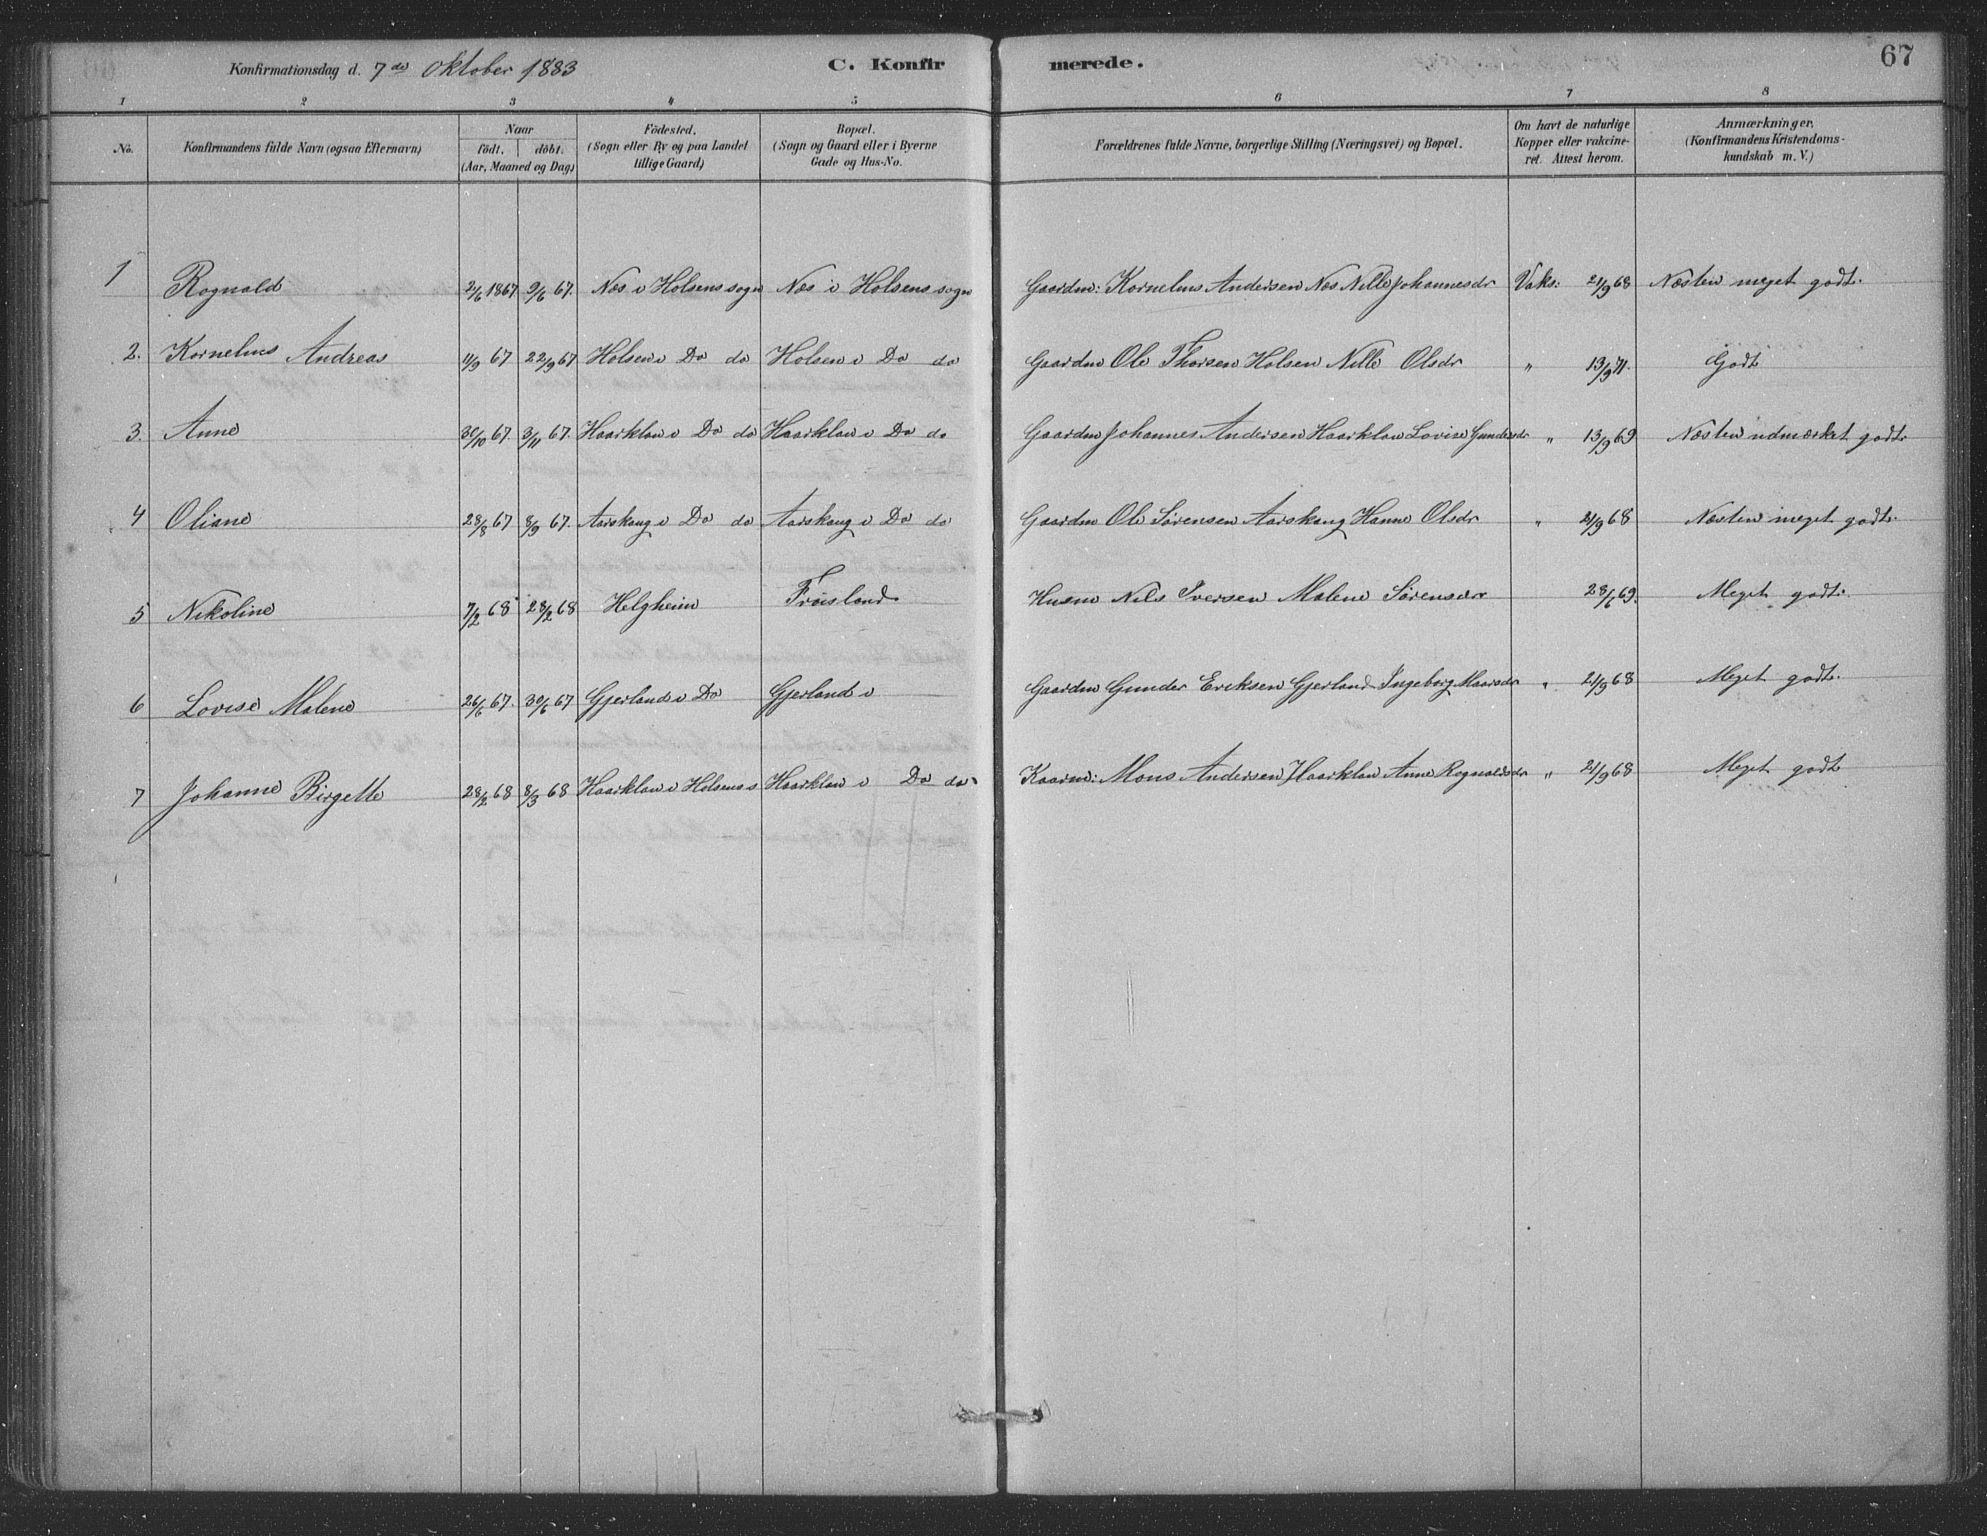 Konfirmationsdag d. 7de Oktober 1883 C. Konfir merede. 67
1 2 3 4 5 6 7 8
No. Konfirmandens fulde Navn (ogsaa Efternavn) Naar født. døbt. (Aar, Maaned og Dag) Födested. (Sogn eller By og paa Landet tillige Gaard) Bopæl. (Sogn og Gaard eller i Byerne Gade og Hus-No. Forældrenes fulde Navne, borgerlige Stilling (Næringsvei) og Bopæl. Om havt de naturlige Kopper eller vakcineret. Attest herom. Anmærkninger, (Konfirmandens Kristendomskundskab m. V.)
1 Rognald 2/6 1867 9/6 67. Næs i Holsens sogn Næs i Holsens sogn Gaardm: Kornelius Andersen Næs Nille Johannesdr Vaks: 21/9 68 Næsten meget godt.
2. Kornelius Andreas 11/9 67 22/9 67 Holsen i Do do Holsen i Do do Gaardm Ole Thorsen Holsen Nille Olsdr " 13/9 71. Godt
3. Anne 30/10 67. 3/11 67. Haarklau i Do do Haarklau i Do do Gaardm Johannes Andersen Haarklau Lovise Gundersdr " 13/9 69 Næsten udmærket godt.
4 Oliane 28/8 67 8/9 67. Aarskaug i Do do Aarskaug i Do do Gaardm Ole Sørensen Aarskaug Hanne Olsdr " 21/9 68 Næsten meget godt.
5 Nikoline 7/2 68 23/2 68 Helgheim Frøisland Husm Nils Iversen Malene Sørensdr 28/6 69. Meget godt.
6 Lovise Malene 26/6 67. 30/6 67 Gjerland i Do Gjerland i — Gaardm Gunder Eriksen Gjerland Ingeborg Maarsdr " 21/9 68 Meget godt.
7 Johanne Birgette 28/2 68 8/3 68 Haarklau i Holsens s Haarklau i Do do. Kaarm: Mons Andersen Haarklau Anne Rognaldsdr " 21/9 68 Meget godt